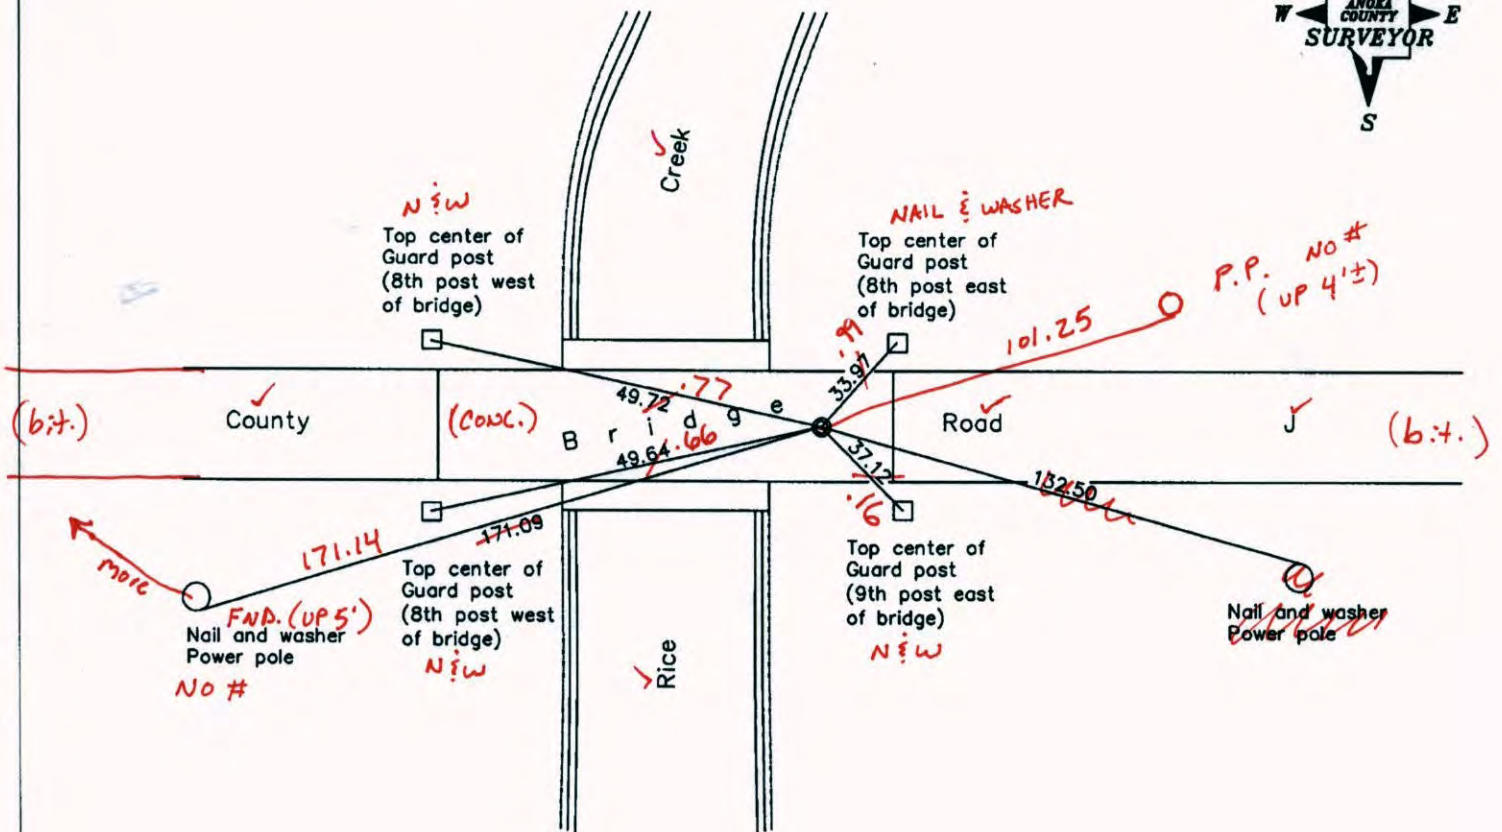 ANOKA
COUNTY
W E
SURVEYOR
S
Creek
N & W
Top center of
Guard post
(8th post west
of bridge)
NAIL & WASHER
Top center of
Guard post
(8th post east
of bridge)
P.P. NO #
(UP 4'±)
101.25
.99
33.97
49.72 .77
(bit.)
County
(CONC.)
Bridge
Road
J
(bit.)
49.64 .66
37.12
.16
132.50
171.14
171.09
more
FND. (UP 5')
Nail and washer
Power pole
NO #
Top center of
Guard post
(8th post west
of bridge)
N & W
Rice
Top center of
Guard post
(9th post east
of bridge)
N & W
Nail and washer
Power pole